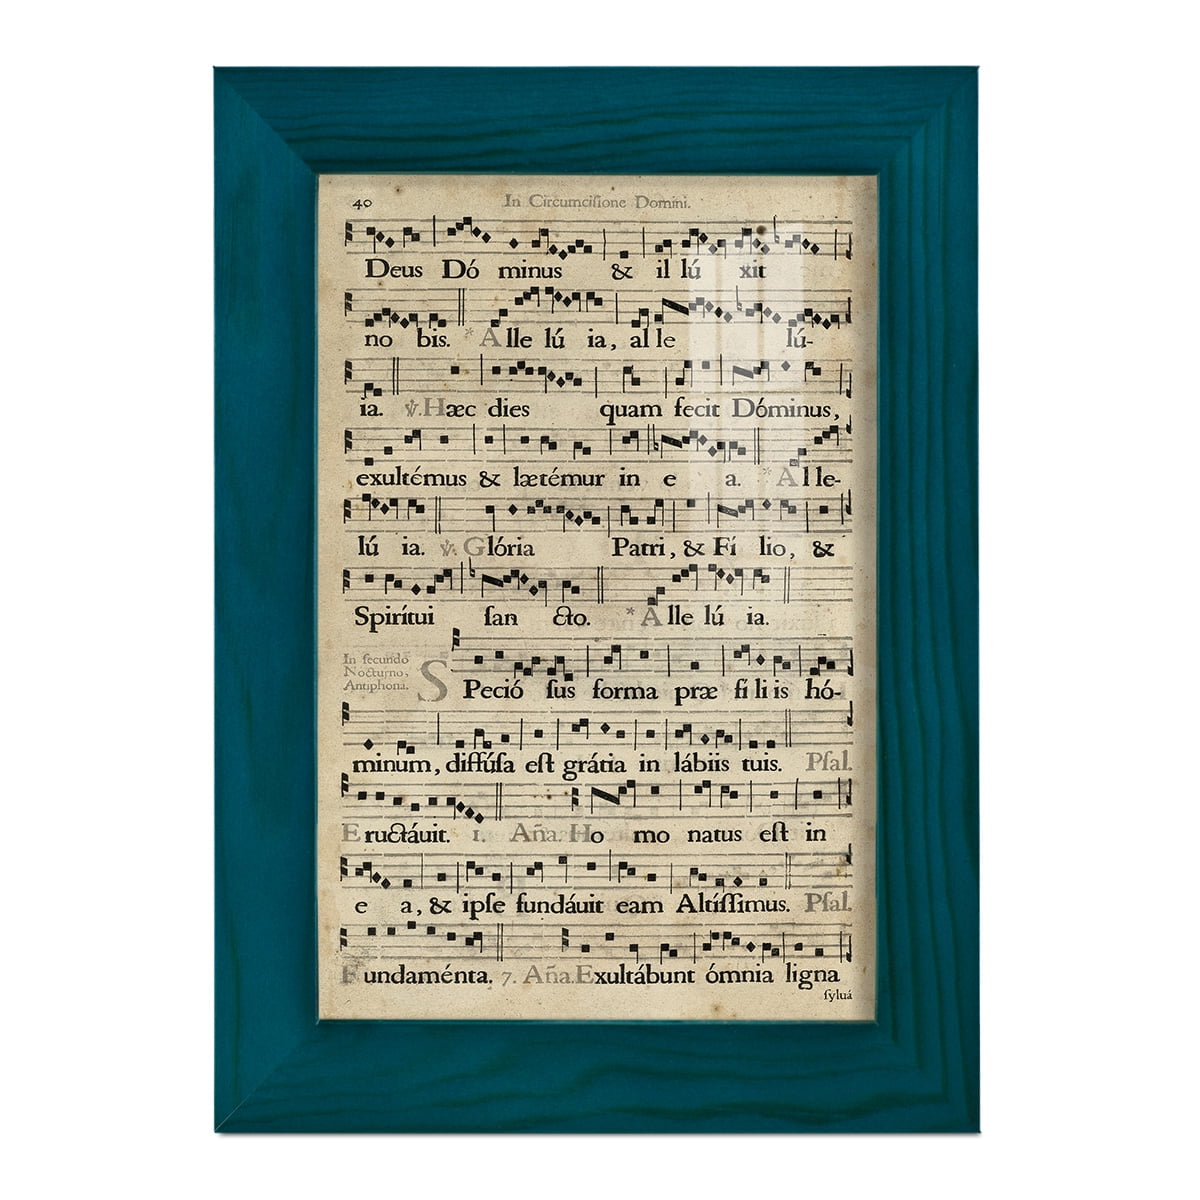 40 In Circumciſione Domini.
Deus Dó minus & il lú xit
no bis. * Alle lú ia, al le lú-
ia. ℣. Hæc dies quam fecit Dóminus,
exultémus & lætémur in e a. * Al le-
lú ia. ℣. Glória Patri, & Fí lio, &
Spirítui ſan cto. * Alle lú ia.
In ſecundo
Nocturno,
Antiphona.
SPeció ſus forma præ fí li is hó-
minum, diffúſa eſt grátia in lábiis tuis. Pſal.
Eructáuit. 1. Aña. Ho mo natus eſt in
e a, & ipſe fundáuit eam Altíſſimus. Pſal.
Fundaménta. 7. Aña. Exultábunt ómnia ligna
ſyluá